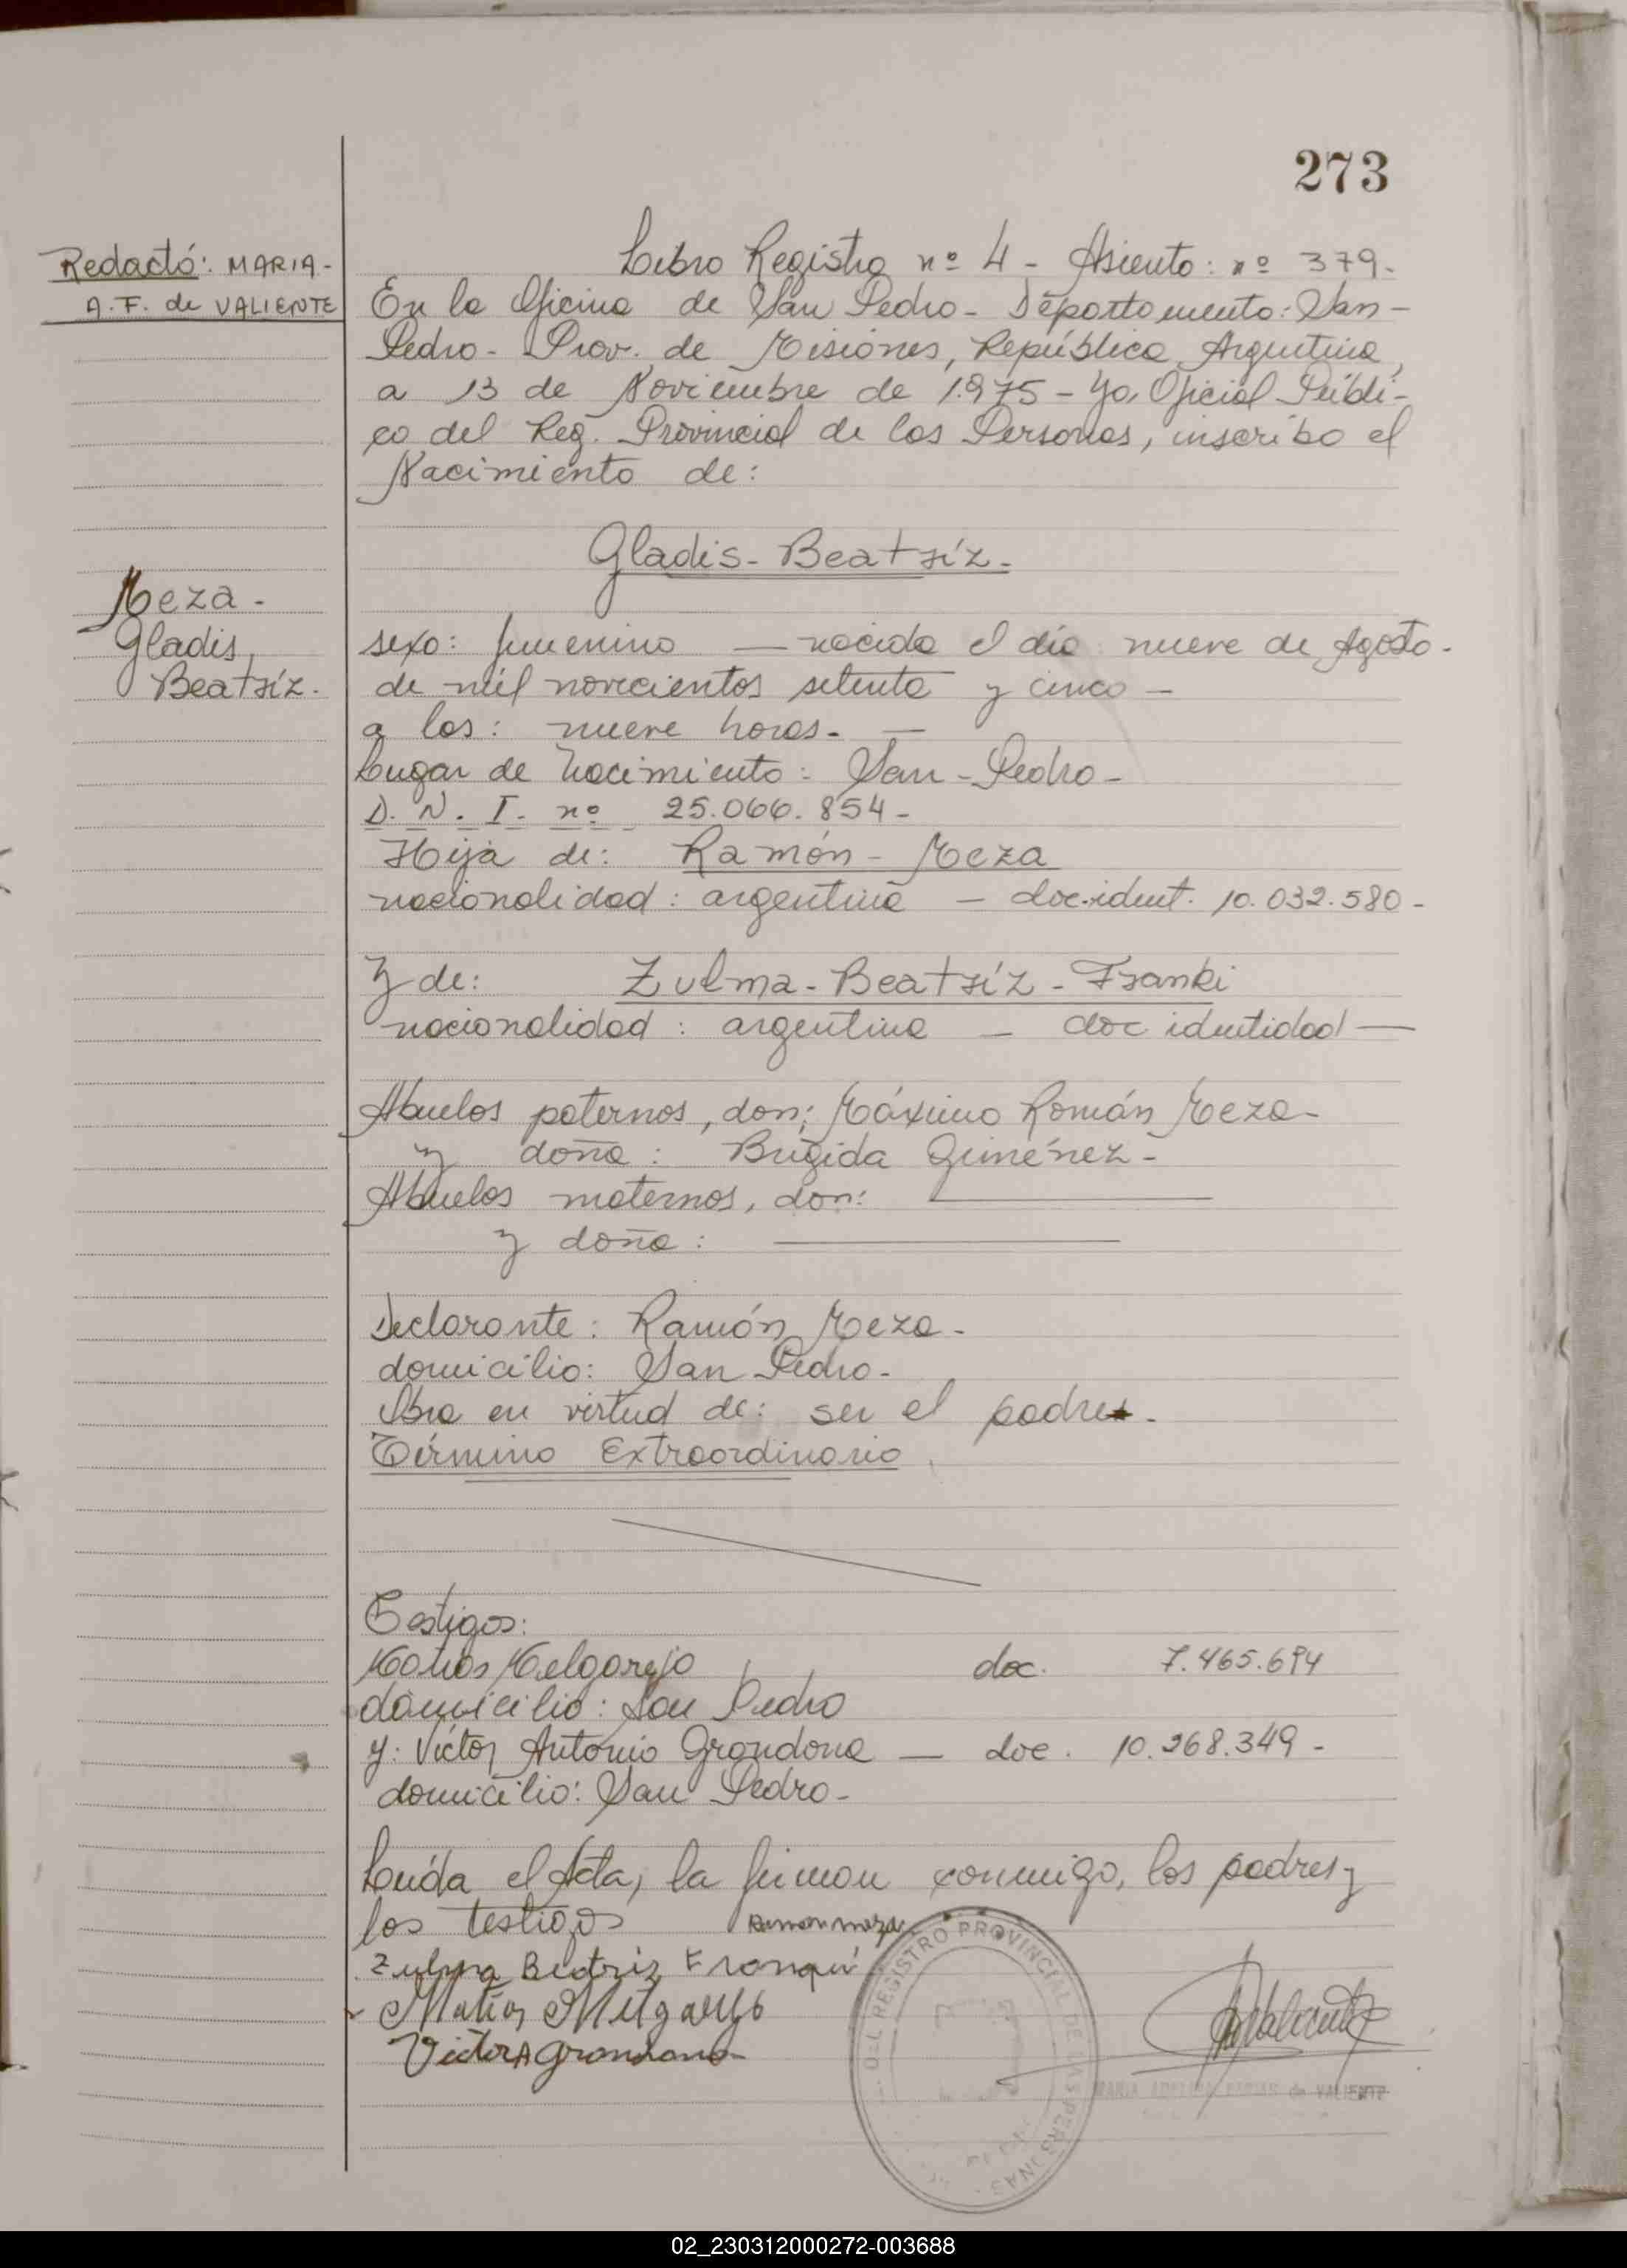 273
Redactó: MARIA-
A.F. de VALIENTE
Libro Registro nº 4 - Asiento: nº 379.
En la Oficina de San Pedro - Departamento: San-
Pedro - Prov. de Misiones, República Argentina,
a 13 de Noviembre de 1.975 - Yo, Oficial Públi-
co del Reg. Provincial de las Personas, inscribo el
Nacimiento de:
Gladis - Beatríz -
Meza -
Gladis,
Beatríz.
sexo: femenino — nacida el día: nueve de Agosto -
de mil novecientos setenta y cinco -
a las: nueve horas. —
Lugar de Nacimiento: San - Pedro -
D. N. I. nº 25.066.854 -
Hija de: Ramón - Meza
nacionalidad: argentina - doc. ident. 10.032.580 -
Y de: Zulma - Beatríz - Franki
nacionalidad: argentina - doc identidad —
Abuelos paternos, don: Máximo Román Meza -
y doña: Brígida Giménez -
Abuelos maternos, don: —
y doña: —
Declarante: Ramón Meza -
domicilio: San Pedro -
Obra en virtud de: ser el padre -
Término Extraordinario
Testigos:
Matías Melgarejo doc. 7.465.694
domicilio: San Pedro
y: Víctor Antonio Grondona — doc. 10.268.349 -
domicilio: San Pedro -
Leída el Acta, la firman conmigo, los padres y
los testigos Ramon meza
Zulma Beatriz Franqui
Matias Melgarejo
Victor A Grondona
DEL REGISTRO PROVINCIAL DE LAS PERSONAS
Valiente
MARIA de VALIENTE
02_230312000272-003688